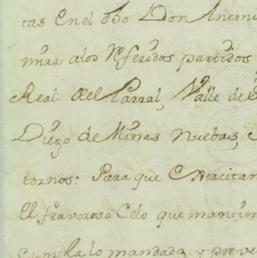 tas en el dho Don Antoni
mar a los Referidos partidos
Real del Parral, Valle de S
Diego de Minas Nuebas,
tornos: Para que Exercitan
el fervoroso Celo que mancion
Cumpla lo mandado y preve